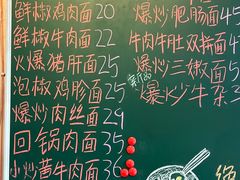 鲜椒鸡肉面20
鲜椒牛肉面22
火爆猪肝面25
泡椒鸡胗面25
爆炒肉丝面29
回锅肉面35
小炒黄牛肉面36
爆炒肥肠面45
牛肉牛肚双拼面4
爆炒三嫩面5
爆炒牛杂3